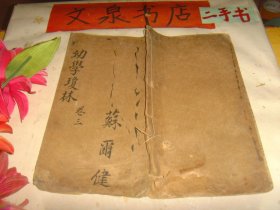 文泉书店
二手书
幼學瓊林 卷三
蘇爾健